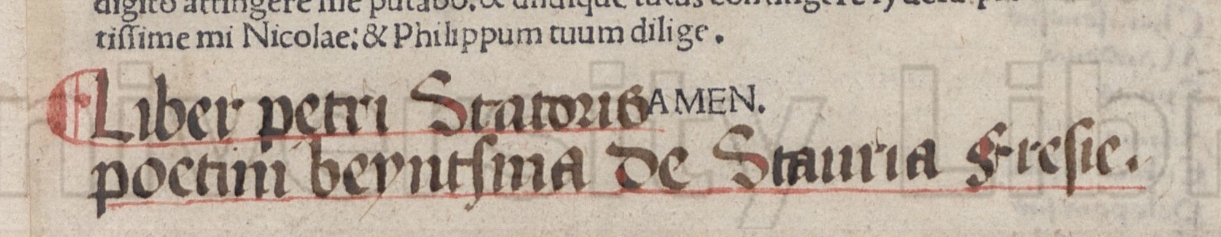 digito attingere me putabo, & undique tutus contingere sydera
tissime mi Nicolae: & Philippum tuum dilige.
AMEN.
Liber petri Statoris
poetini beyntsma de Stauria Fresie.